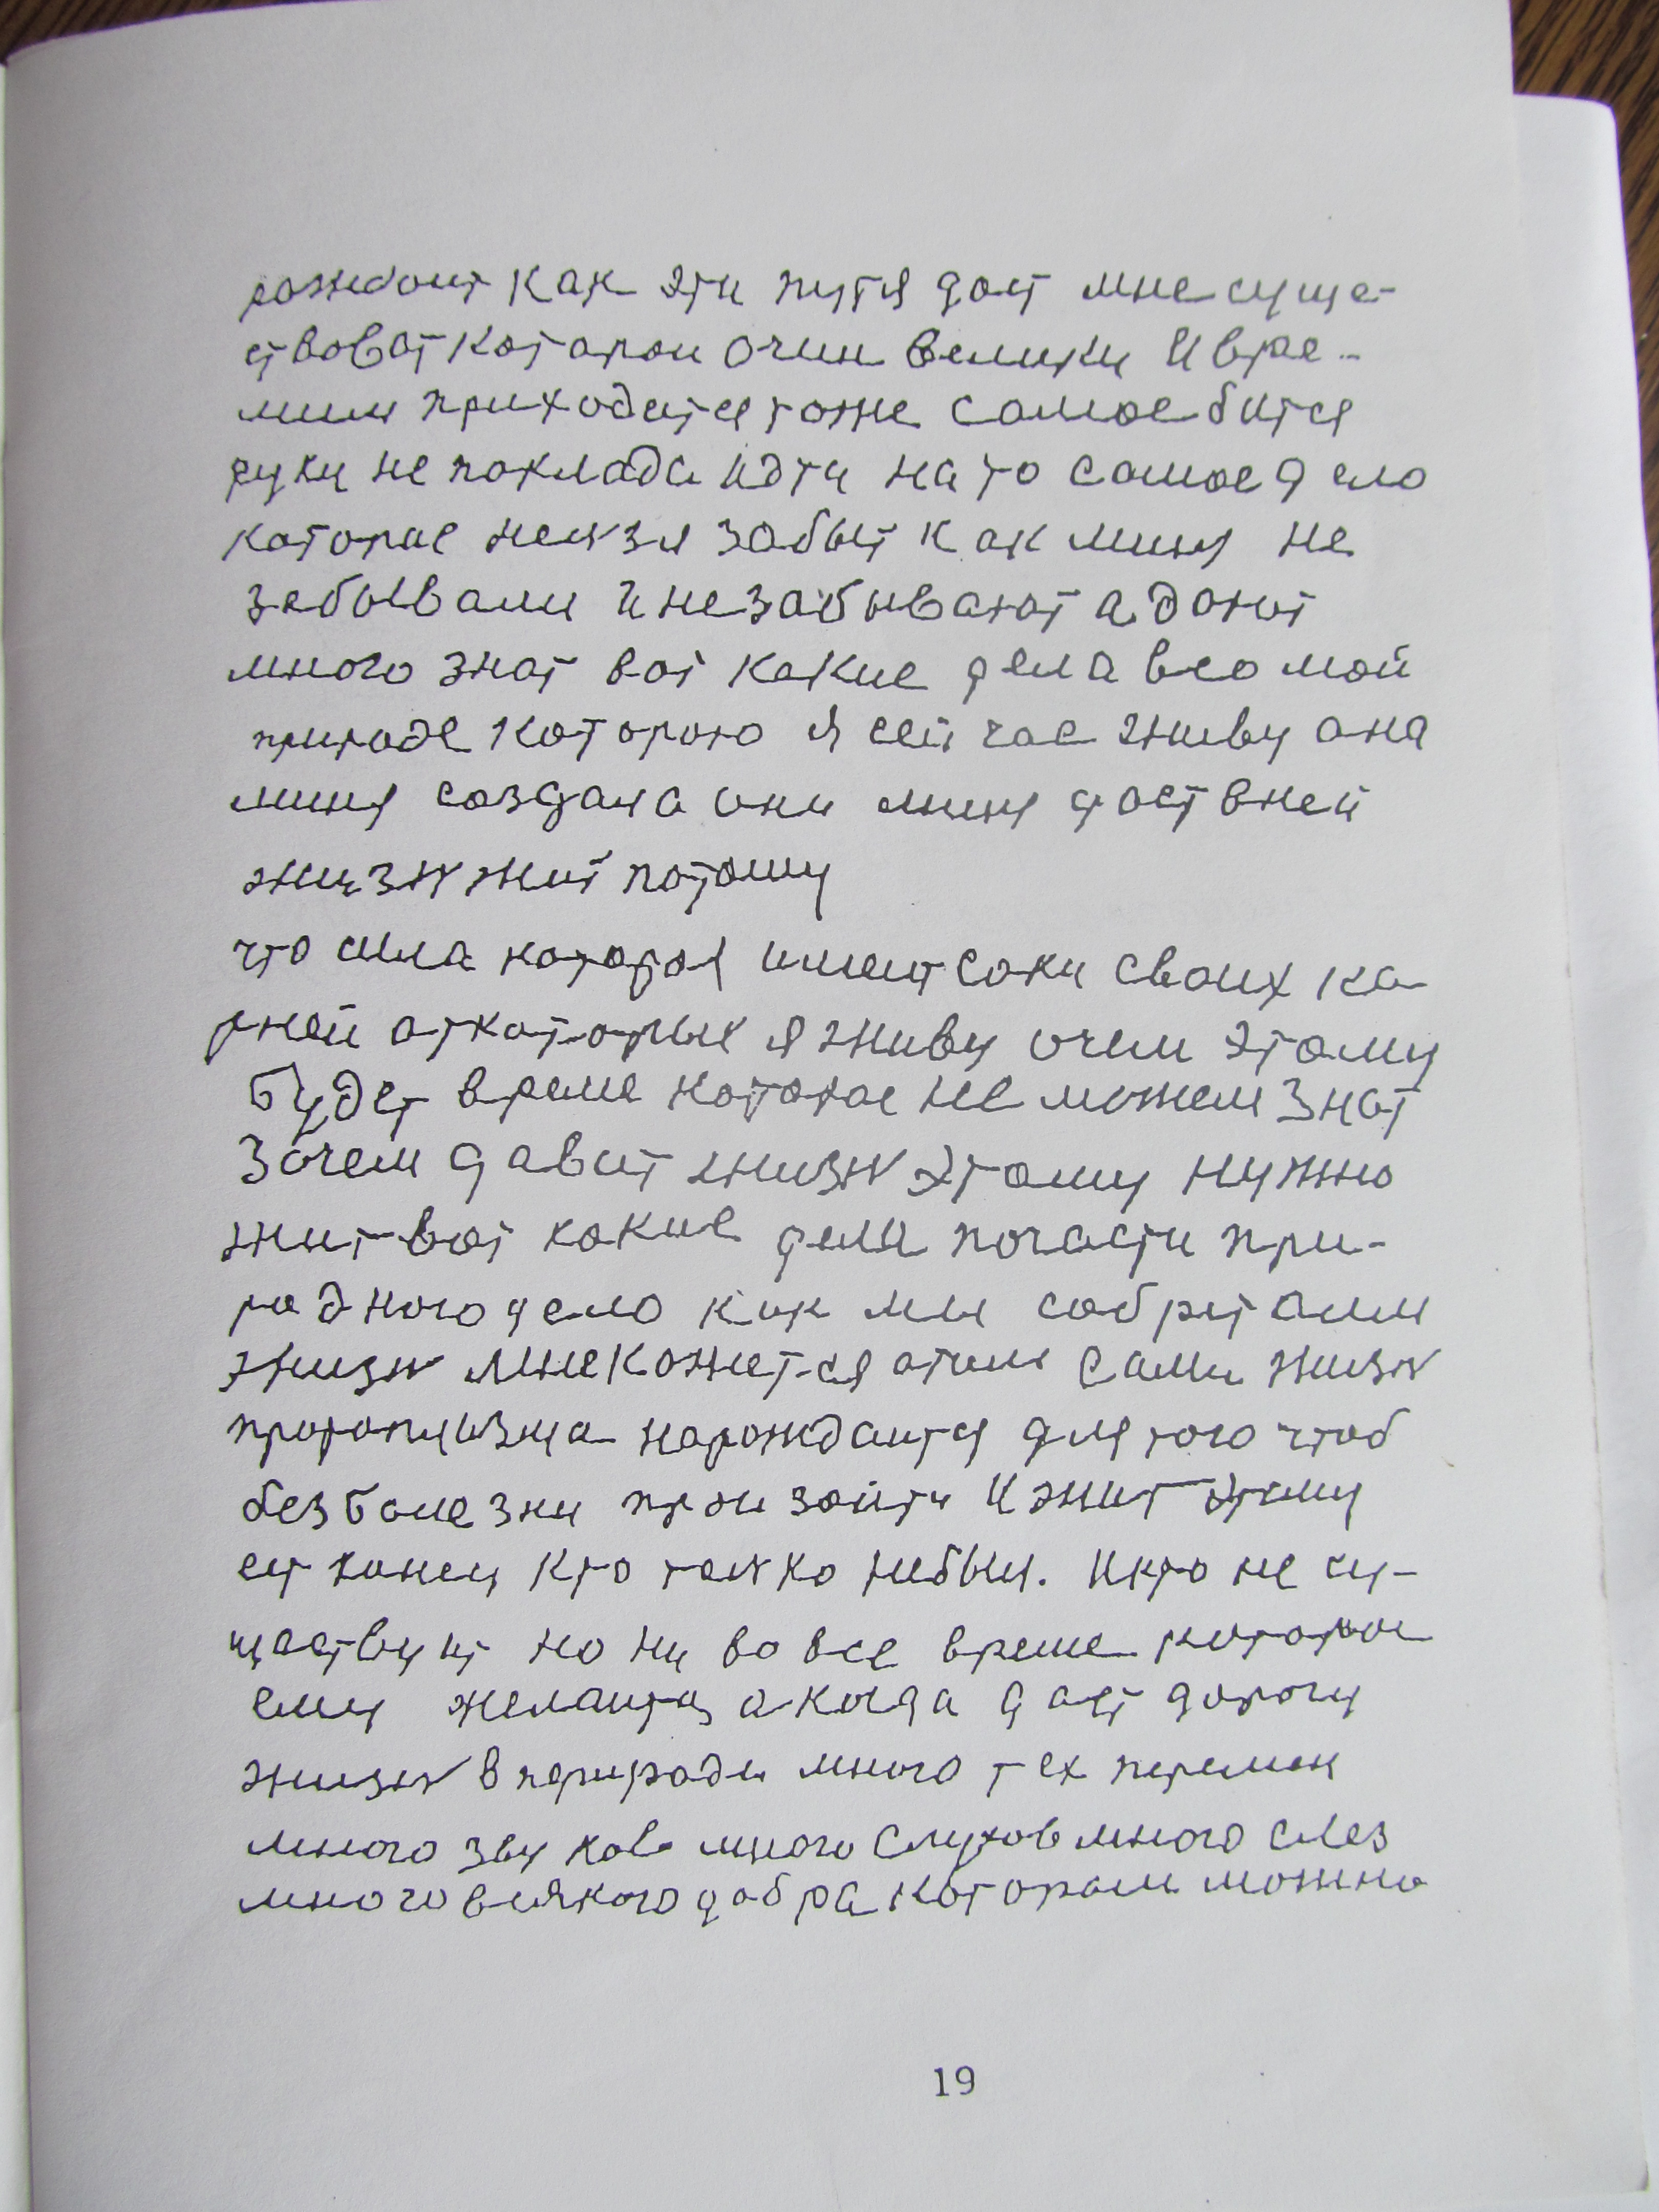 рождаит как эти путя дает мне суще-
ствоват катараи очин велики И вре-
мим приходится тоже самое битcя
руки не покладаи идти на то самое дело
каторае нелзя забыт как миня не
забывали и незабывают а дают
много знат вот какие дела всо мой
природе которою я сейчас живу ана
миня создала они миня даст вней
жизн жит патому
что сила которая имеит соки своих ка-
рней аткаторые я живу очем этому
Будет время каторае не можем знат
Зачем давит жизн этому нужно
жит вот какие дела почасти при-
родного дело как мы собретали
жизн мнекажется отчим сами жизн
нарождаится для того чтоб
безболезни произойти и жит этому
ест канец кто толко небыл. Икто не су-
щаствуит но ни во все время катарое
ему желаится а когда дает дорогу
жизн в природи много тех перемен
много звуков много слухов много слез
много всякого добра катарам можно
19